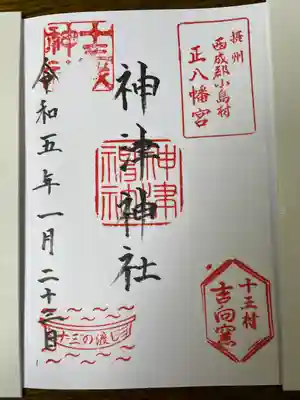 摂州
西成郡小島村
正八幡宮
神津神社
神津
神社
十三
神
令和五年一月二十三日
十三の渡し
吉向窯